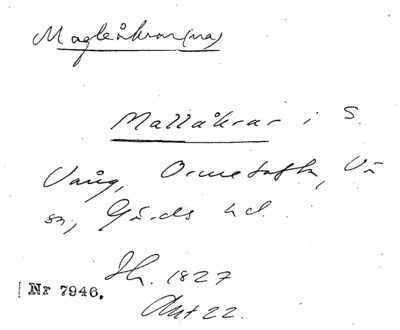 Magleåkrar(na)
Mallåkrar i S.
Vång, Ormetofta, Vå
sn, Gärds hd.
Sk. 1827
Akt 22.
Nr 7946.